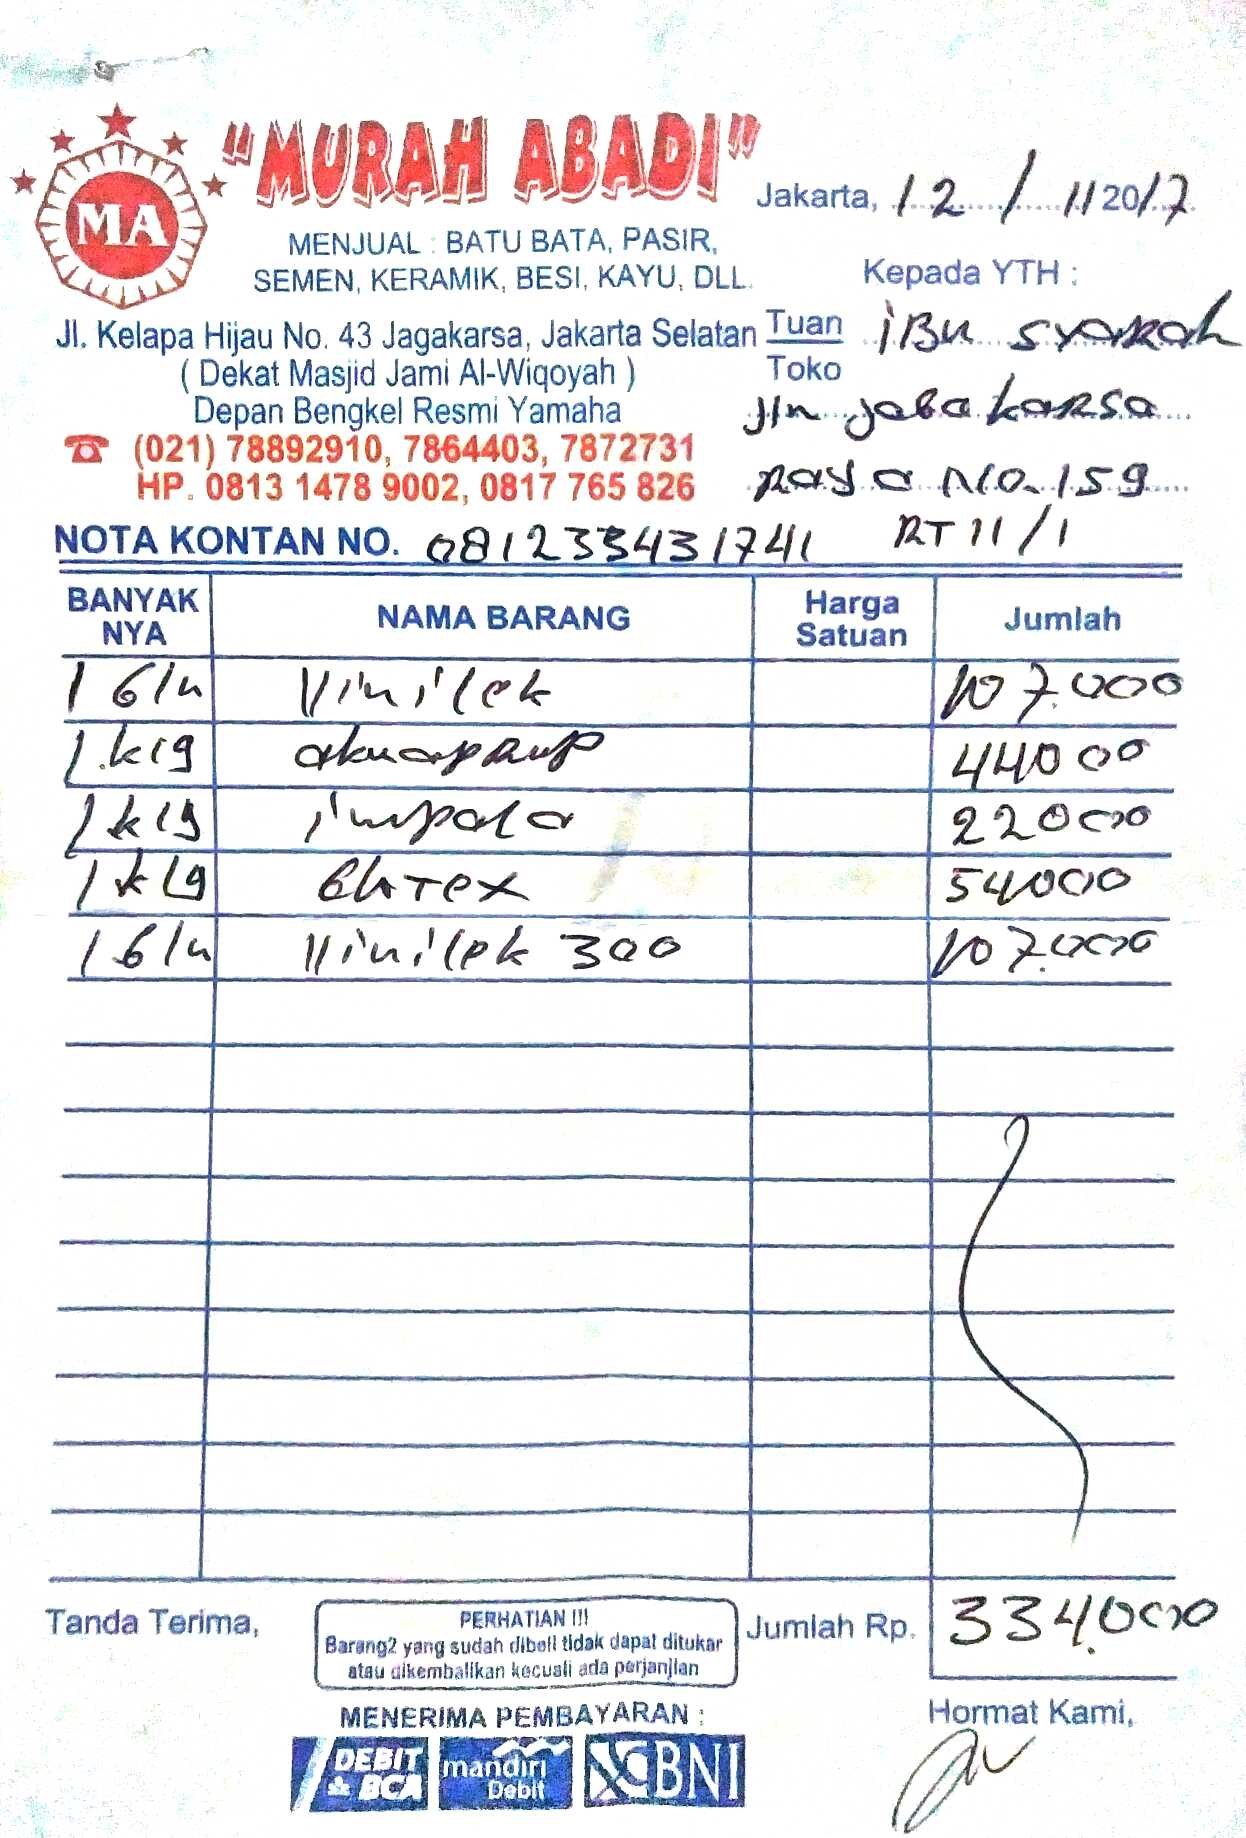 MA
"MURAH ABADI"
MENJUAL : BATU BATA, PASIR,
SEMEN, KERAMIK, BESI, KAYU, DLL.
Jl. Kelapa Hijau No. 43 Jagakarsa, Jakarta Selatan
( Dekat Masjid Jami Al-Wiqoyah )
Depan Bengkel Resmi Yamaha
☎ (021) 78892910, 7864403, 7872731
HP. 0813 1478 9002, 0817 765 826
Jakarta, 12 / 11 2017
Kepada YTH :
Tuan
Toko
iBu syarah
jln
raya No. 159
RT 11 / 1
NOTA KONTAN NO. 081233431741
BANYAK NYA NAMA BARANG Harga Satuan Jumlah
1 Gln Vinilek 107.000
1 klg 44000
1 klg impala 22000
1 klg 54000
1 Gln Vinilek 300 107.000
Tanda Terima,
PERHATIAN !!!
Barang2 yang sudah dibeli tidak dapat ditukar
atau dikembalikan kecuali ada perjanjian
Jumlah Rp. 334.000
MENERIMA PEMBAYARAN :
DEBIT BCA
mandiri Debit
BNI
Hormat Kami,